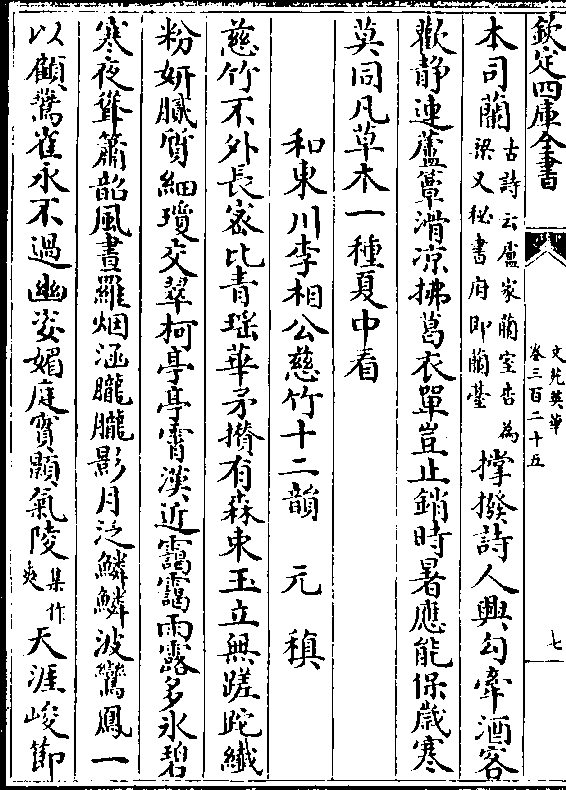 欽定四庫全書
文苑英華
卷三百二十五
七
本司蘭古詩云盧家蘭室杏為梁又秘書府即蘭臺撑撥詩人興勾牽酒客
歡静連蘆簟滑凉拂葛衣單豈止銷時暑應能保歲寒
莫同凡草木一種夏中看
和東川李相公慈竹十二韻 元稹
慈竹不外長宻比青瑶華矛攢有森束玉立無蹉跎纎
粉妍膩質細瓊交翠柯亭亭霄漢近靄靄雨露多氷碧
寒夜聳簫韶風晝羅烟涵朧朧影月泛鱗鱗波鸞鳳一
以顧驚雀永不過幽姿媚庭實顥氣陵集作爽天涯峻節